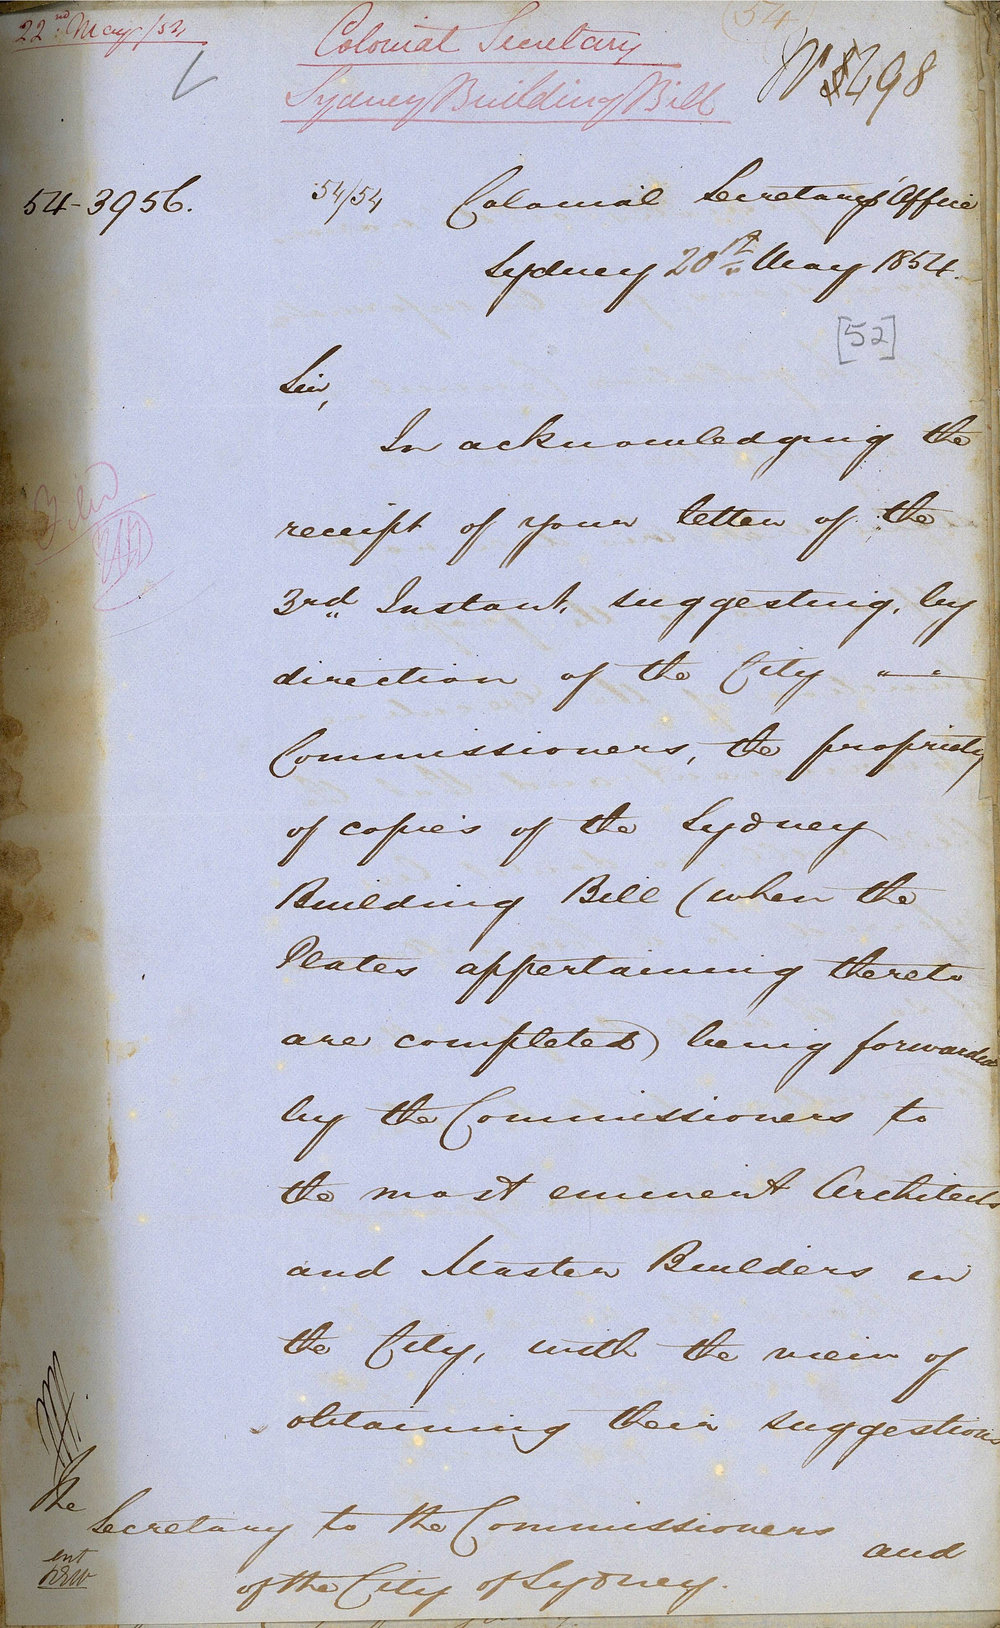 22nd May/54
Colonial Secretary
Sydney Building Bill
54
No 498
54-3956.
54/54
Colonial Secretary's Office
Sydney 20th May 1854.
[52]
Sir,
In acknowledging the
receipt of your letter of the
3rd Instant, suggesting, by
direction of the City
Commissioners, the propriety
of copies of the Sydney
Building Bill (when the
Plates appertaining thereto
are completed) being forwarded
by the Commissioners to
the most eminent Architects
and Master Builders in
the City, with the view of
obtaining their suggestions
and
The
Secretary to the Commissioners
of the City of Sydney.
ent